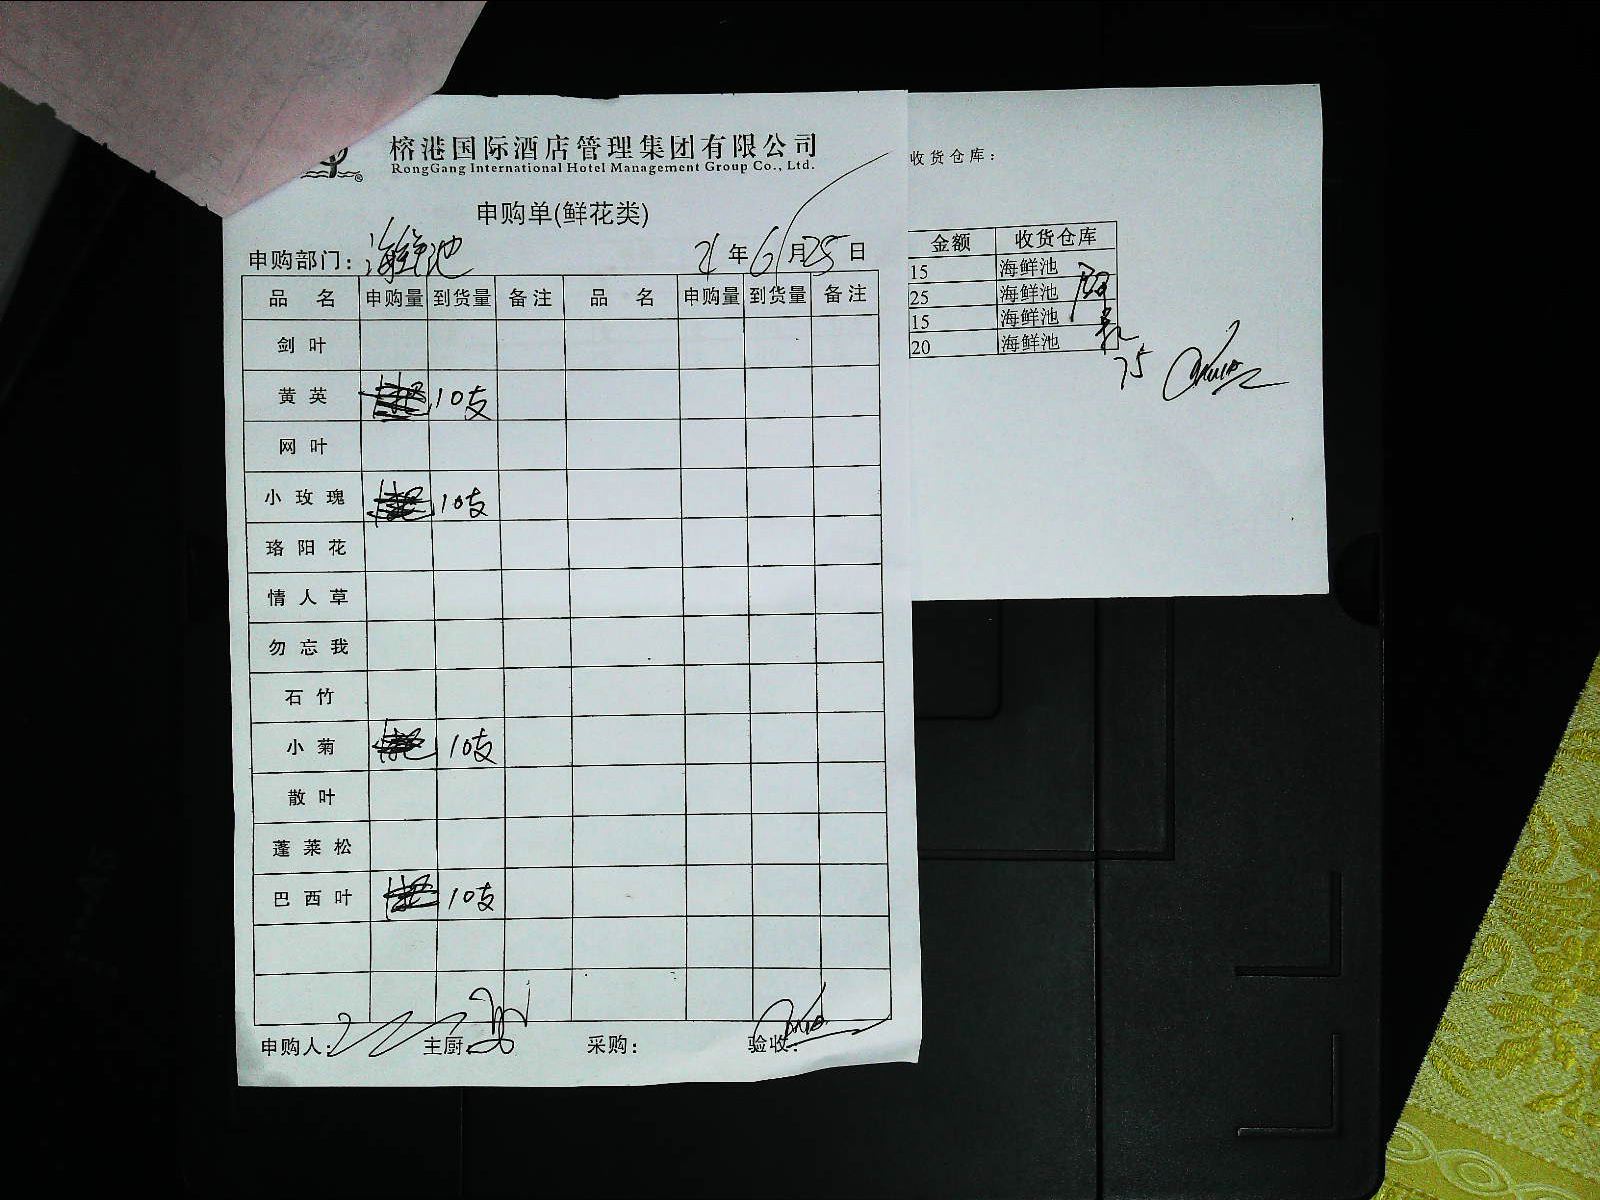 榕港国际酒店管理集团有限公司
RongGang International Hotel Management Group Co., Ltd.
申购单(鲜花类)
申购部门: 海鲜池 21 年 6 月 25 日
品 名 申购量 到货量 备注 品 名 申购量 到货量 备注
剑 叶
黄 英 10支
网 叶
小 玫 瑰 10支
珞 阳 花
情 人 草
勿 忘 我
石 竹
小 菊 10支
散 叶
蓬 莱 松
巴 西 叶 10支
申购人: 主厨: 采购: 验收:
收货仓库:
金额 收货仓库
15 海鲜池
25 海鲜池
15 海鲜池
20 海鲜池
75